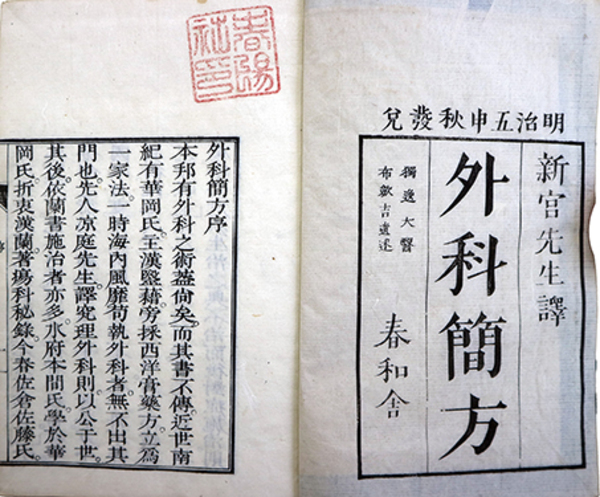 明治五申秋發兌
新宮先生譯
外科簡方
獨逸大醫
布歛吉遺述
春和舍
春陽社印
外科簡方序
本邦有外科之術蓋尚矣。而其書不傳。近世南
紀有華岡氏。主漢醫藉。旁採西洋膏藥方。立為
一家法。一時海內風靡。苟執外科者。無不出其
門也。先人凉庭先生。譯究理外科則。以公于世。
其後依蘭書施治者亦多。水府本間氏。學於華
岡氏。折衷漢蘭。著瘍科秘錄。今春佐倉佐藤氏。